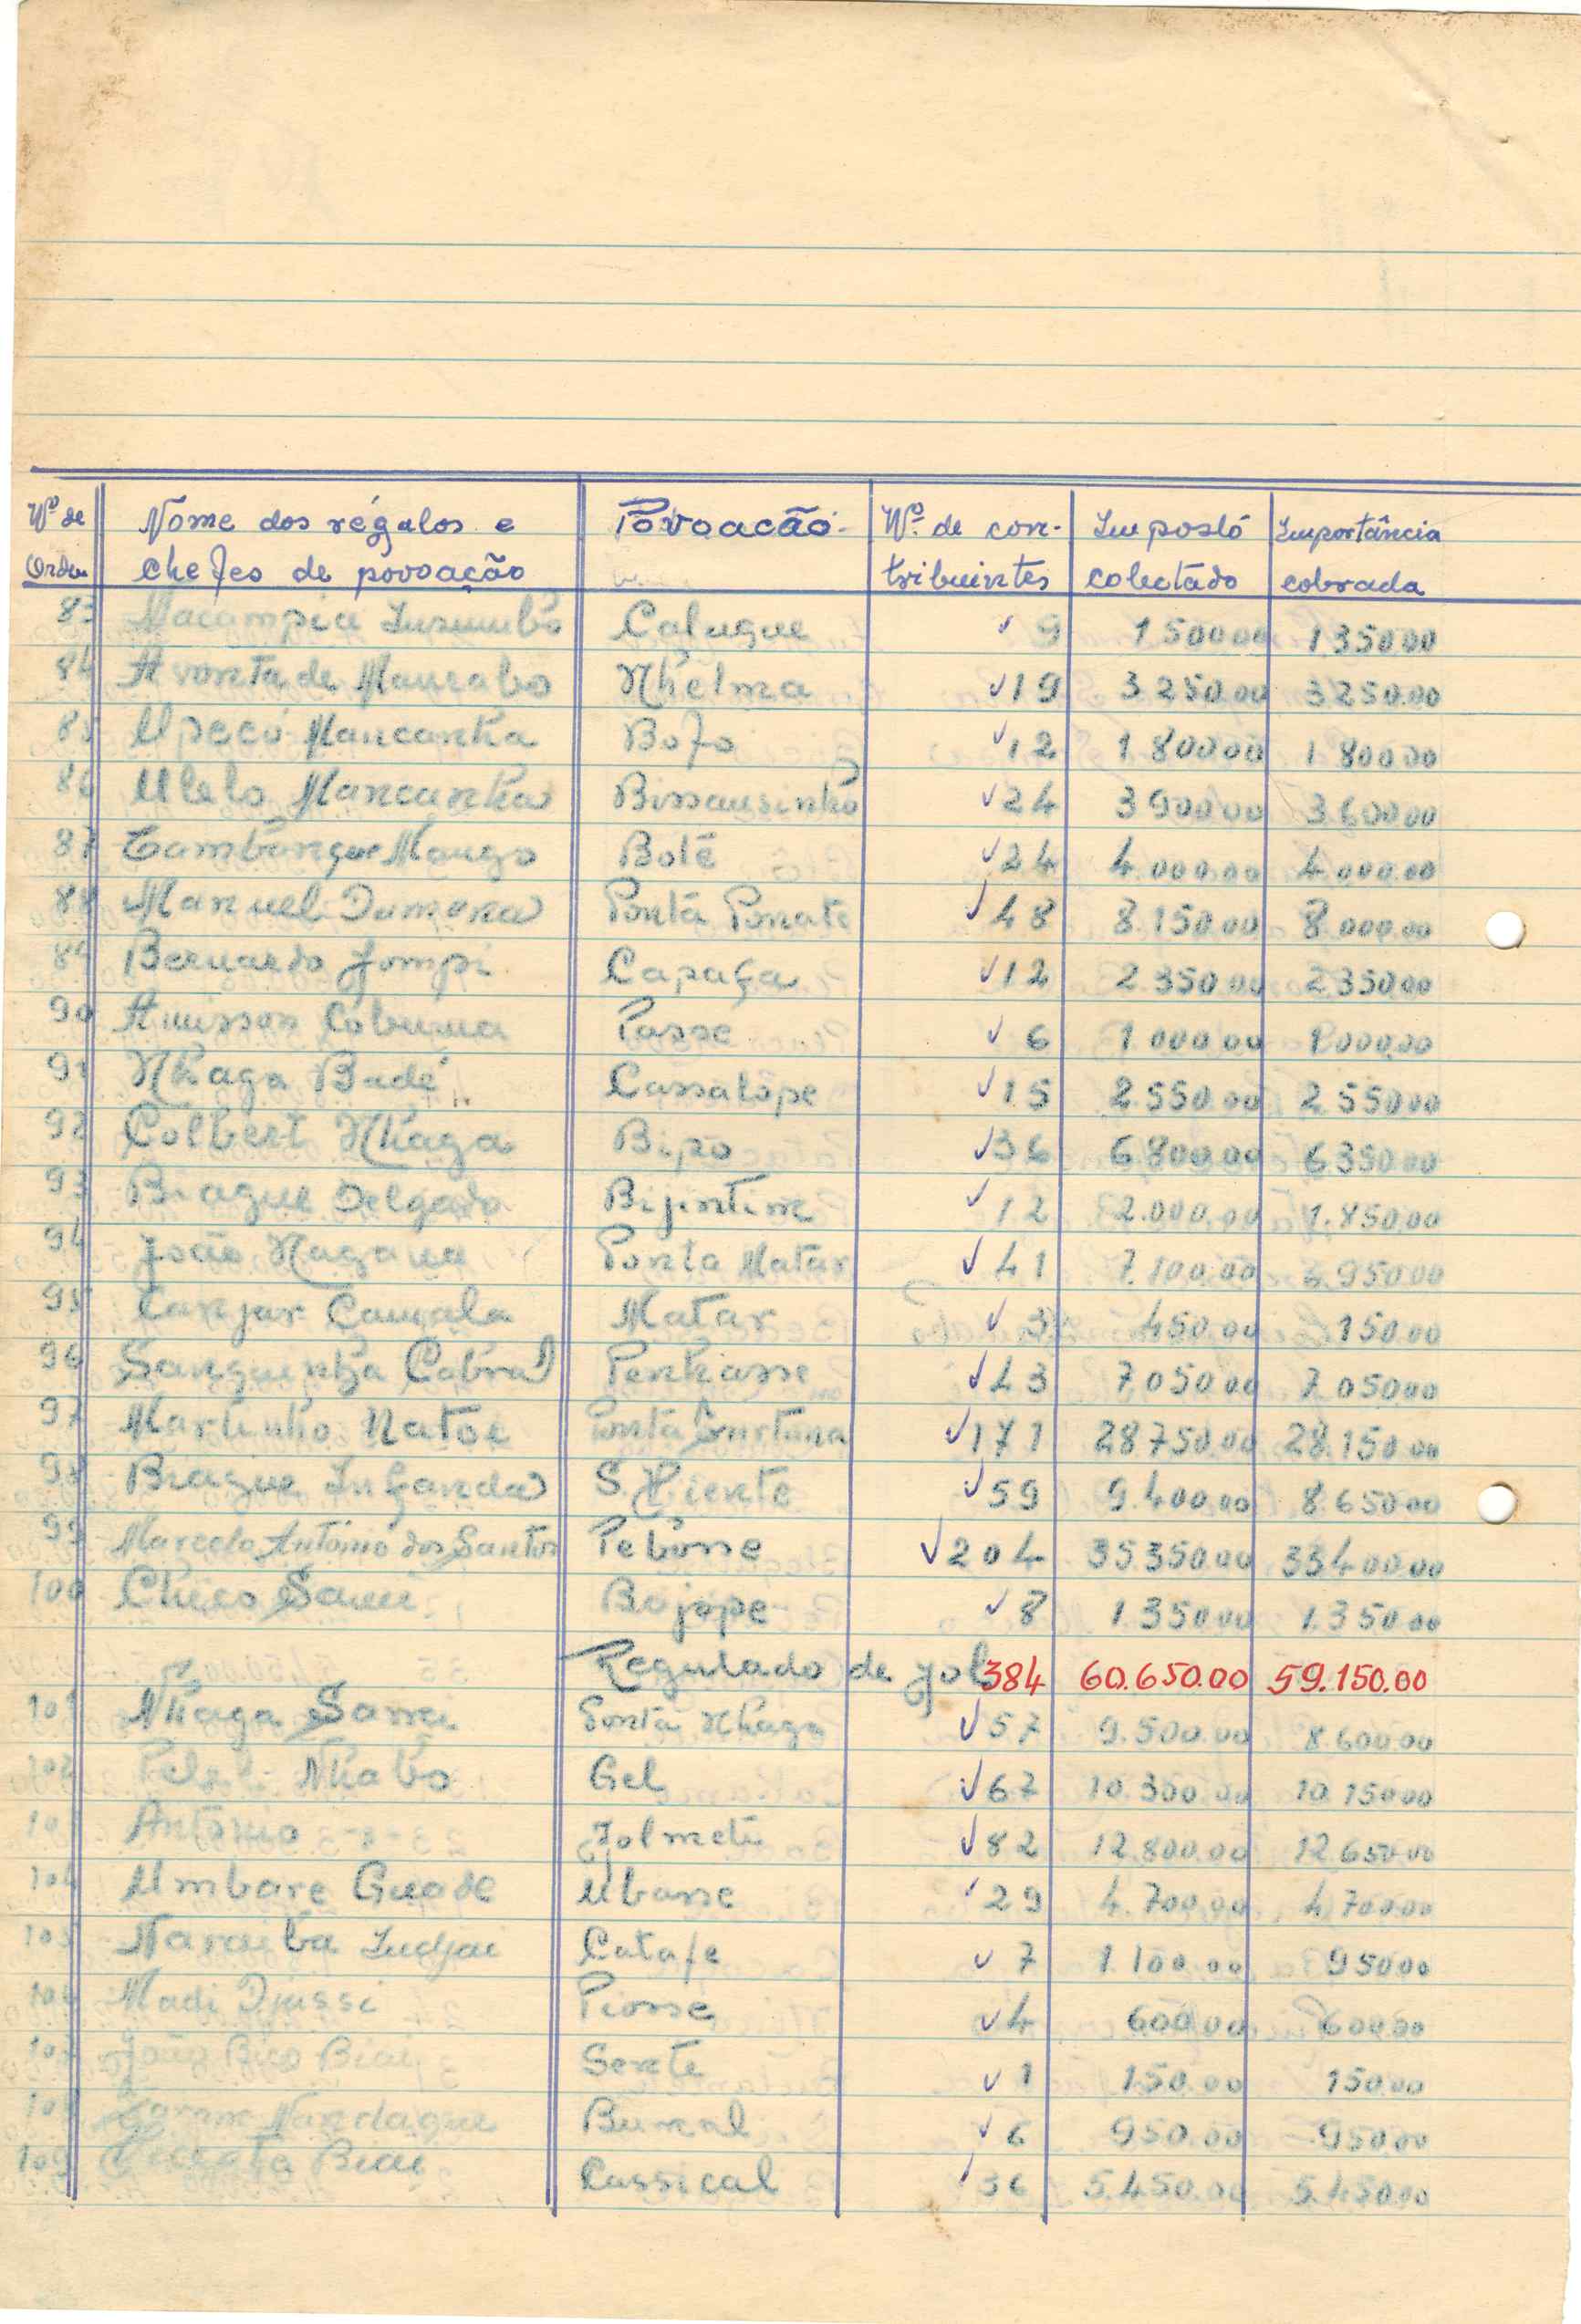 Nº de Nome dos régulos e Povoacão Nº. de con- Imposto Importância
Ordem chefes de povoação tribuintes colectado cobrada
83 Calugue ✓ 9 1500.00 1350.00
84 A vontade Nhelma ✓19 3250.00 3250.00
85 Mancanha Bofo ✓12 1800.00 1800.00
86 Ulelo Mancanha Bissausinho ✓24 3900.00 3600.00
87 Mango Boté ✓24 4.000.00 4.000.00
88 Manuel Ponta ✓48 8.150.00 8.000.00
89 Bernardo Jompi Capafa ✓12 2.350.00 2350.00
90 Passe ✓ 6 1.000.00 1000.00
91 Nhaga Badé Cassalope ✓15 2.550.00 2.550.00
92 Colbert Nhaga Bipo ✓36 6.800.00 6350.00
93 Brague Delgado Bijintine ✓12 2.000.00 1.850.00
94 João Nagana Ponta Matar ✓41 7.100.00 6.950.00
95 Matar ✓ 3 450.00 150.00
96 Cabral Penhasse ✓43 7.050.00 7.050.00
97 Martinho Natoe Ponta ✓171 28.750.00 28.150.00
98 Brague Infanda S. Vicente ✓59 9.400.00 8.650.00
99 Marcelo António dos Santos Pebosse ✓204 35.350.00 33400.00
100 Chico Sami Bojope ✓8 1.350.00 1.350.00
Regulado de Jol 384 60.650.00 59.150.00
101 Nhaga Ponta Nhaga ✓57 9.500.00 8.600.00
102 Nhabo Gel ✓67 10.300.00 10.150.00
103 António Jolmete ✓82 12.800.00 12.650.00
104 Umbare Guade Ubasse ✓29 4.700.00 4.700.00
105 Naraiba Indjai Catafe ✓ 7 1.100.00 950.00
106 Madi Djassi ✓4 600.00 600.00
107 João Bico Biai Sente ✓1 150.00 150.00
108 Bumal ✓6 950.00 950.00
109 Biai Cassical ✓36 5.450.00 5.450.00